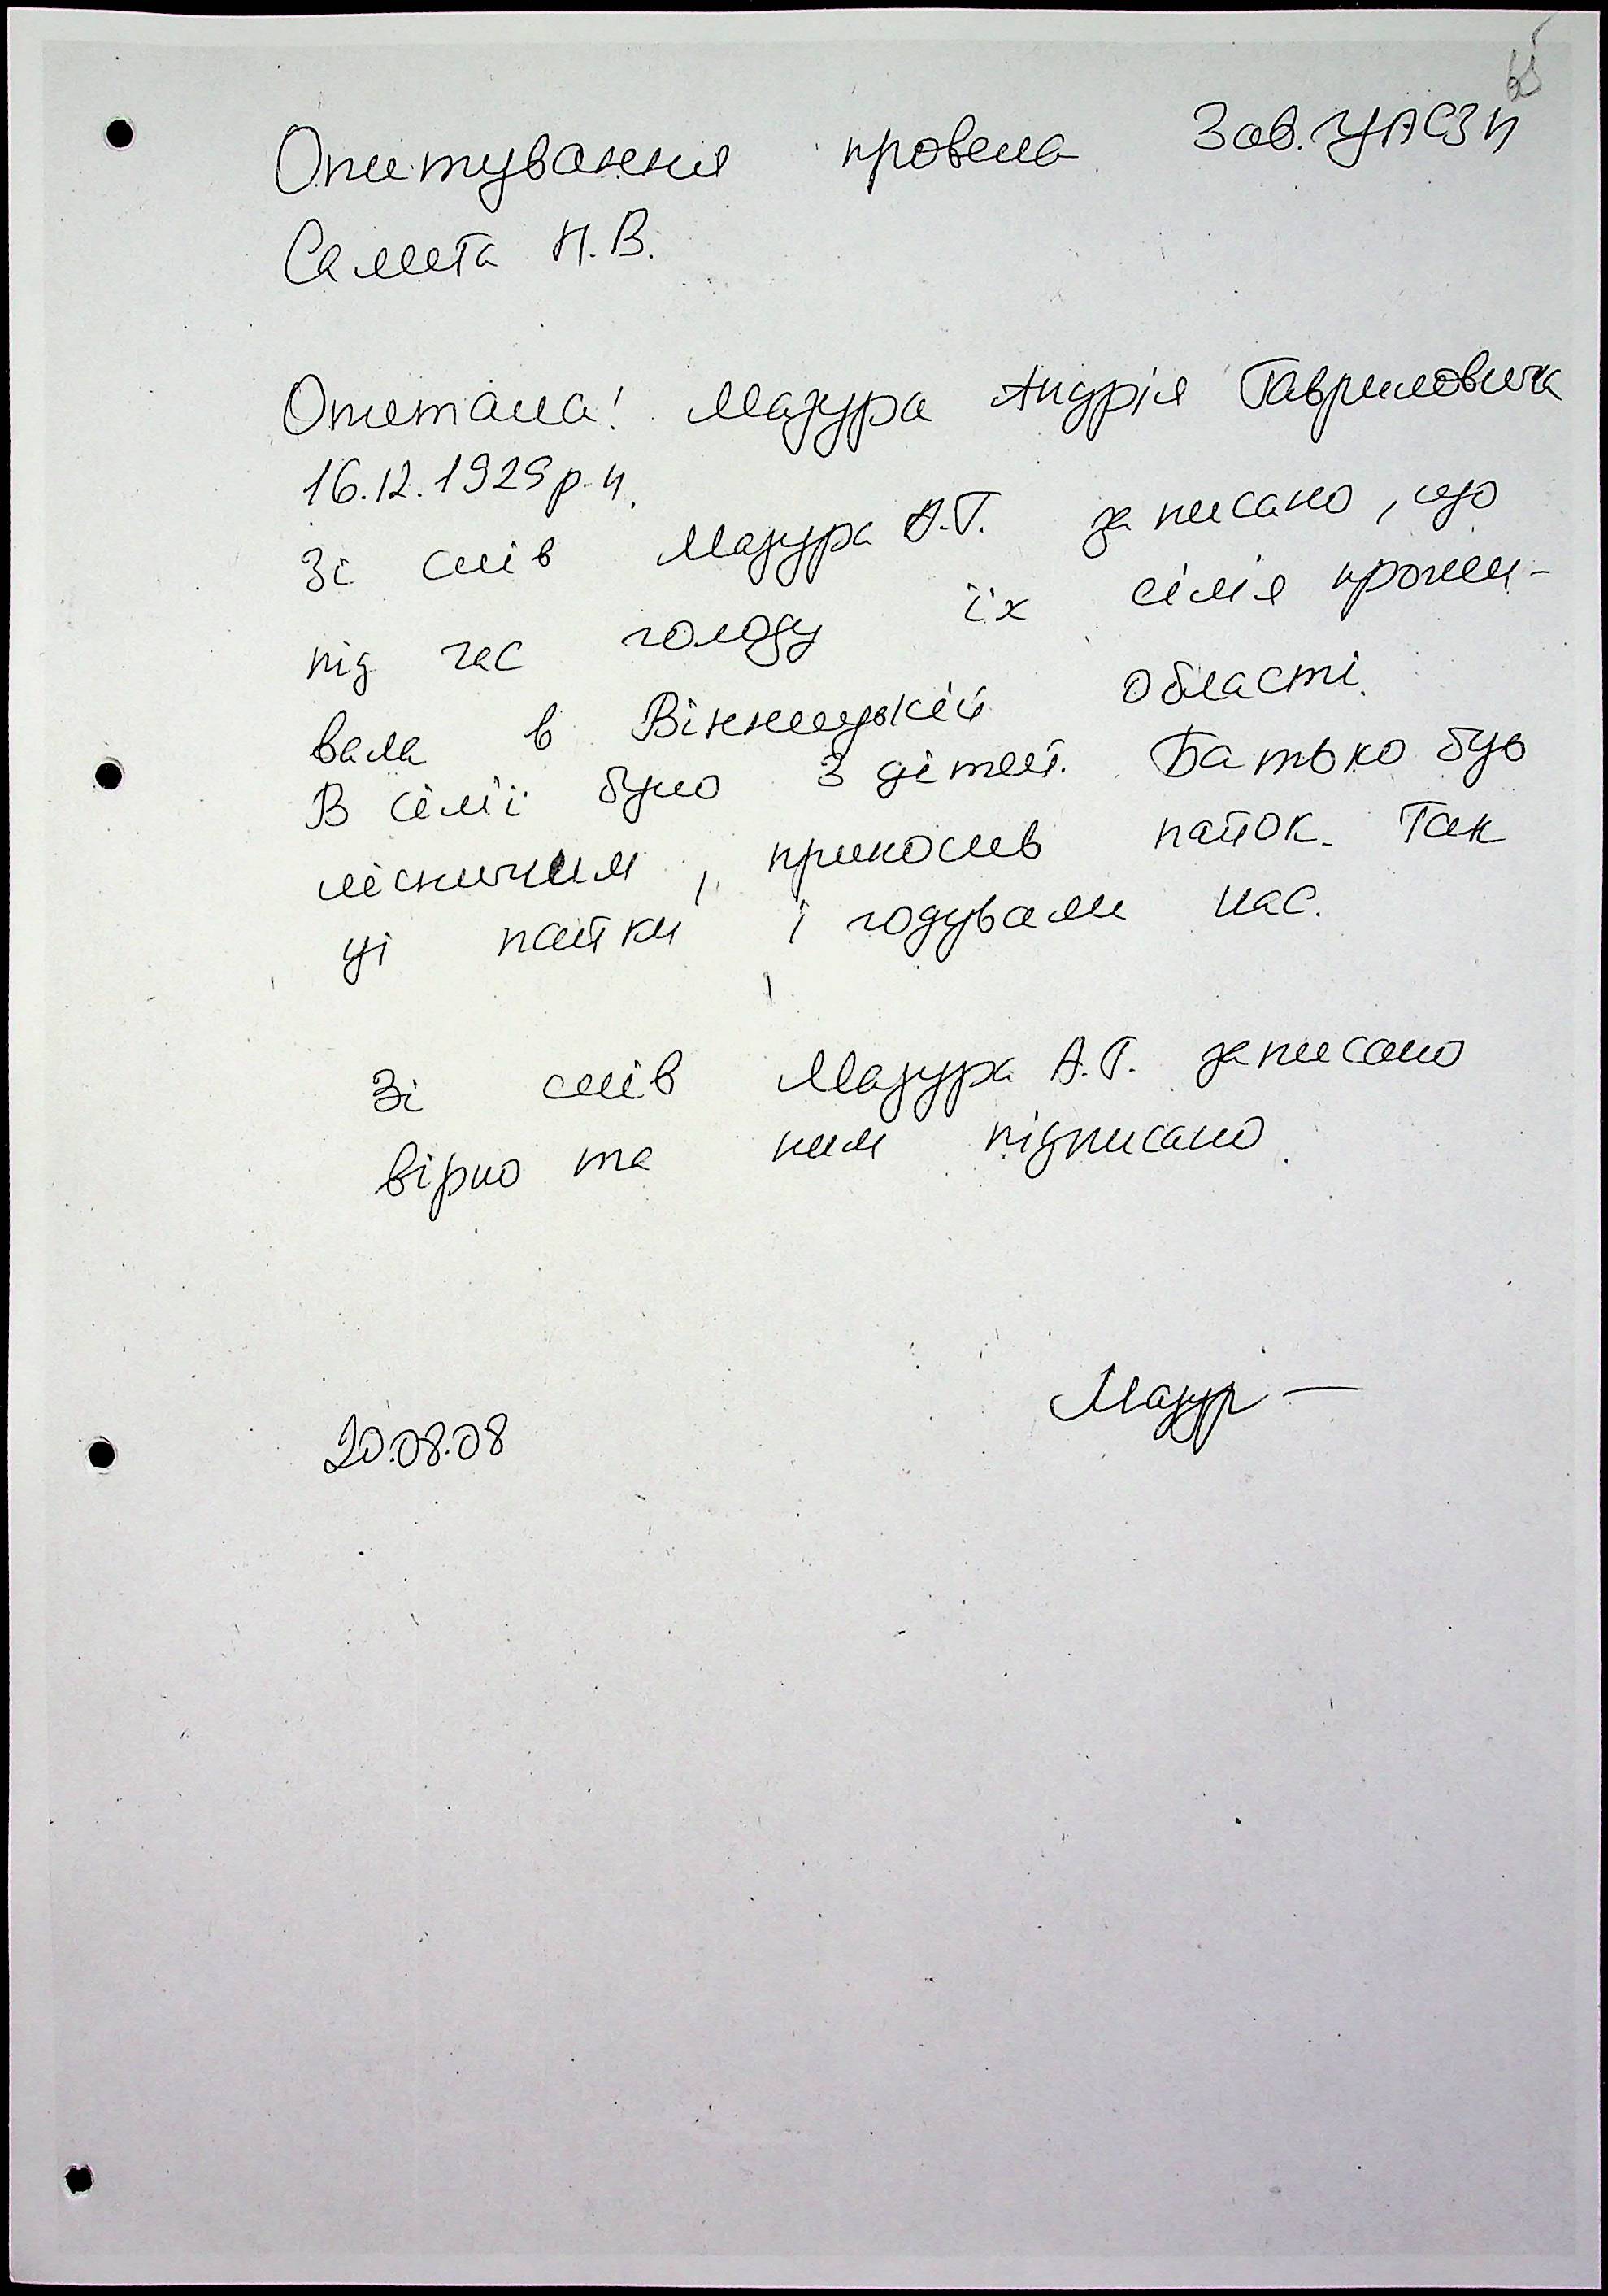 65
Опитування провела Зав. УАСЗН
Самета Н.В.
Опитала! Мазура Андрія Гавриловича
16.12.1929 р.н.
Зі слів Мазура А.Г. записано, що
під час голоду їх сімія прожи-
вала в Вінницькій області.
В сімії було 3 дітей. Батько був
лісничим, приносив пайок. Так
ці пайки і годували нас.
Зі слів Мазура А.Г. записано
вірно та ним підписано.
Мазур
20.08.08